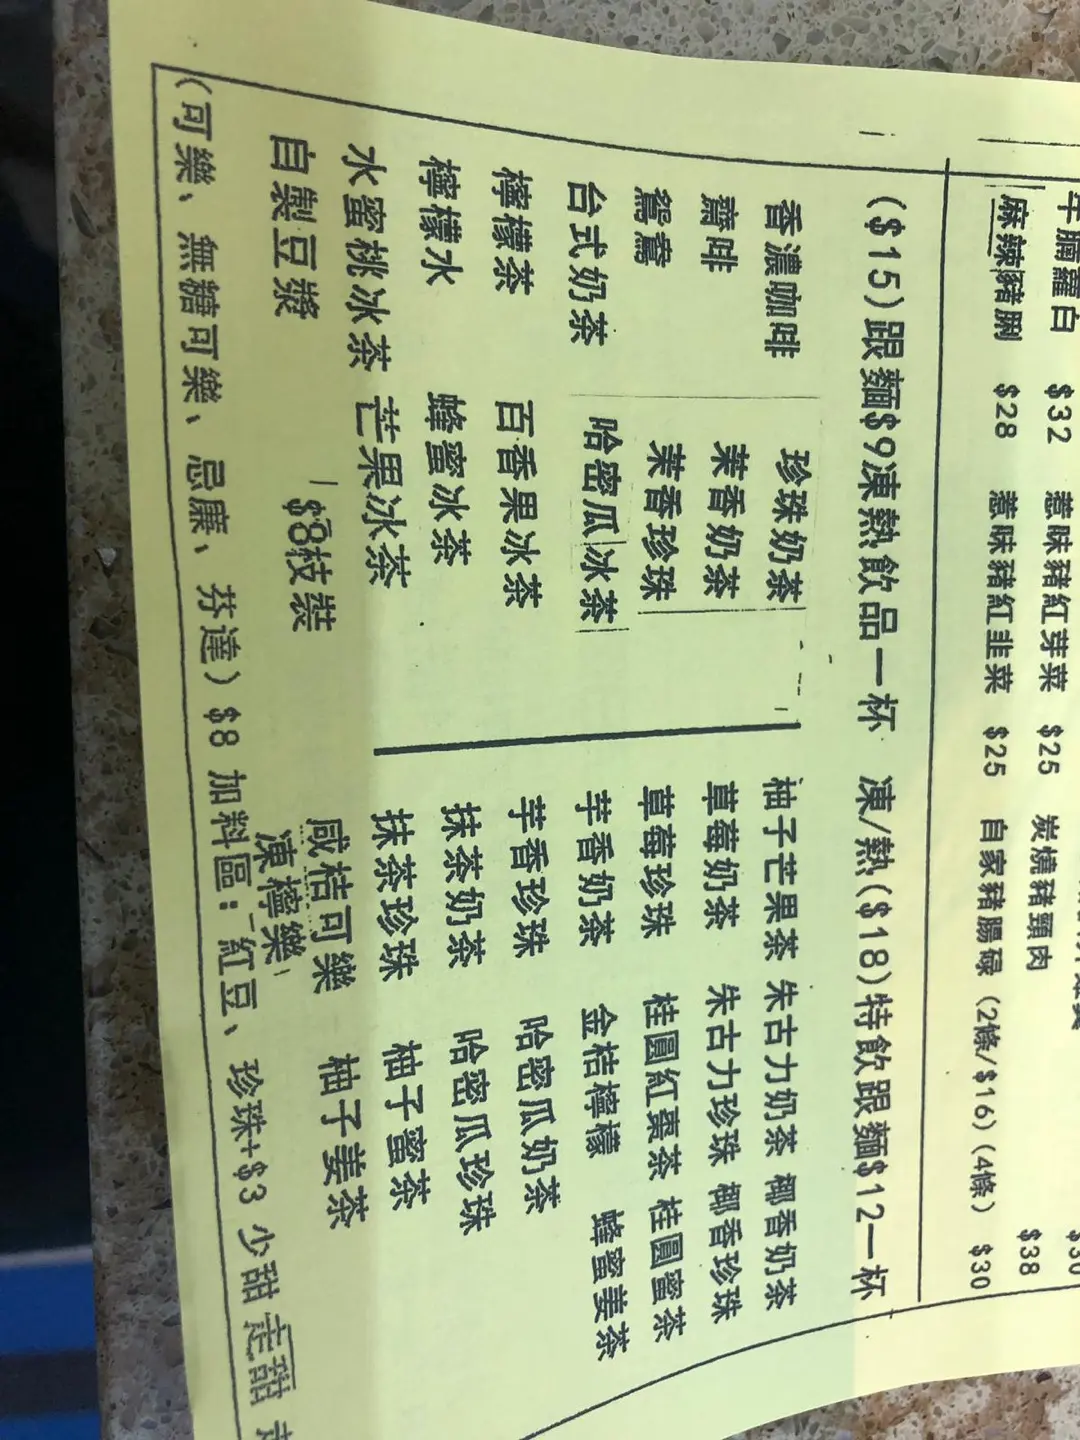 蘿白 $32 惹味豬紅芽菜 $25 炭燒豬頸肉 $38
麻辣豬脷 $28 惹味豬紅韭菜 $25 自家豬腸碌 (2條/$16) (4條) $30
($15)跟麵$9凍熱飲品一杯 凍/熱($18)特飲跟麵$12一杯
香濃咖啡 珍珠奶茶 柚子芒果茶 朱古力奶茶 椰香奶茶
齋啡 茉香奶茶 草莓奶茶 朱古力珍珠 椰香珍珠
鴛鴦 茉香珍珠 草莓珍珠 桂圓紅棗茶 桂圓蜜茶
台式奶茶 哈密瓜冰茶 芋香奶茶 金桔檸檬 蜂蜜姜茶
檸檬茶 百香果冰茶 芋香珍珠 哈密瓜奶茶
檸檬水 蜂蜜冰茶 抹茶奶茶 哈密瓜珍珠
水蜜桃冰茶 芒果冰茶 抹茶珍珠 柚子蜜茶
自製豆漿 $8枝裝 咸桔可樂 柚子姜茶
凍檸樂
(可樂、無糖可樂、忌廉、芬達) $8 加料區:紅豆、珍珠+$3 少甜 走甜